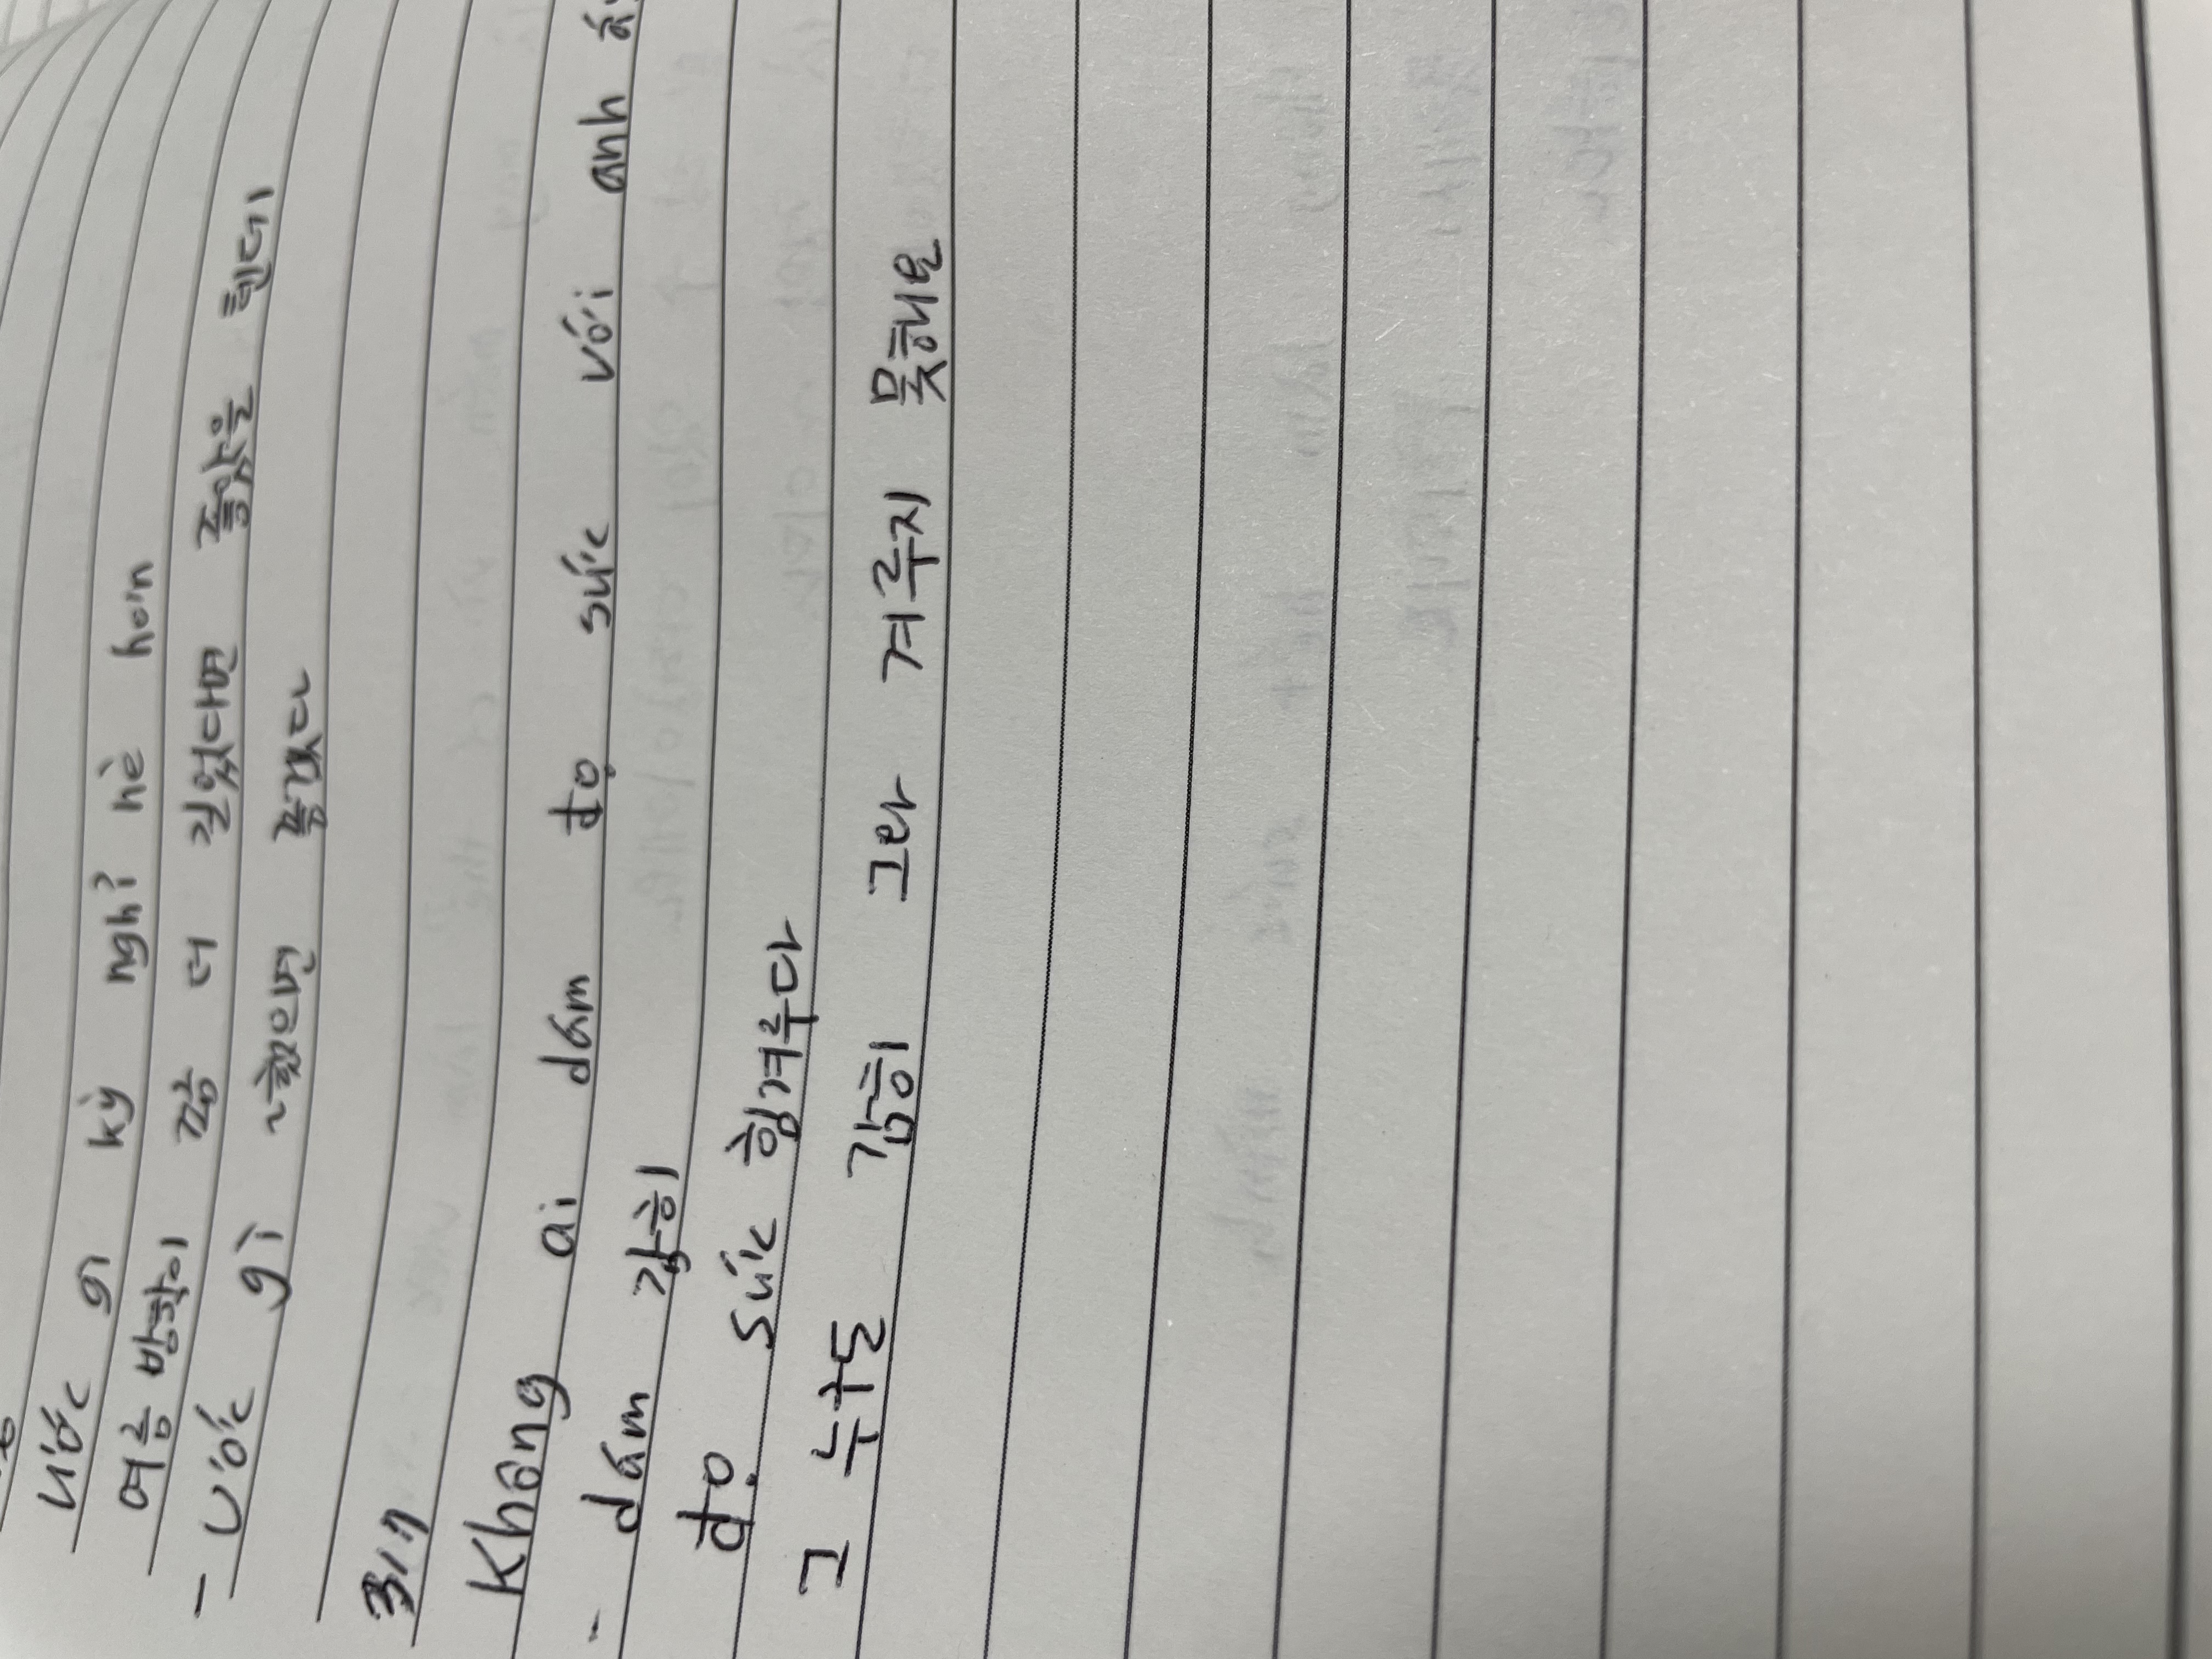 ước gì kỳ nghỉ hè hơn
여름 방학이 쫌 더 길었다면 좋았을 텐데
- ước gì ~했으면 좋겠다
317
Không ai dám đọ sức với anh ấy
- dám 감히
đọ sức 힘겨루다
그 누구도 감히 그와 겨루지 못해요